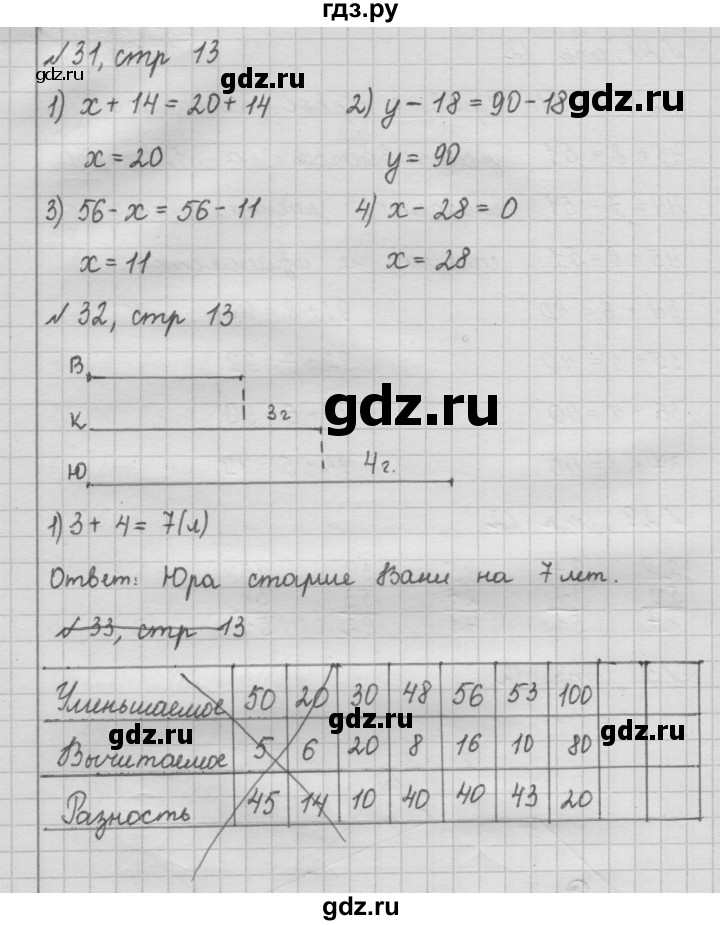 гдз.ру
№31, стр 13
gdz.ru
gdz.ru
gdz.ru
1) x + 14 = 20 + 14  2) y - 18 = 90 - 18
x = 20  y = 90
3) 56 - x = 56 - 11  4) x - 28 = 0
x = 11  x = 28
№32, стр 13
В
3г
gdz.ru
К
4г.
Ю
1) 3 + 4 = 7(л)
Ответ: Юра старше Вани на 7 лет.
№33, стр 13
Уменьшаемое 50 20 30 48 56 53 100
gdz.ru
gdz.ru
gdz.ru
Вычитаемое 5 6 20 8 16 10 80
Разность 45 14 10 40 40 43 20
gdz.ru